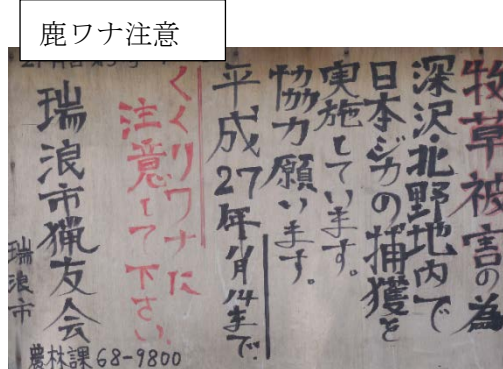 鹿ワナ注意
牧草被害の為
深沢・北野地内で
日本ジカの捕獲を
実施しています。
協力願います。
平成27年 月14まで。
くくりワナに
注意して下さい。
瑞浪市猟友会
瑞浪市
農林課68-9800